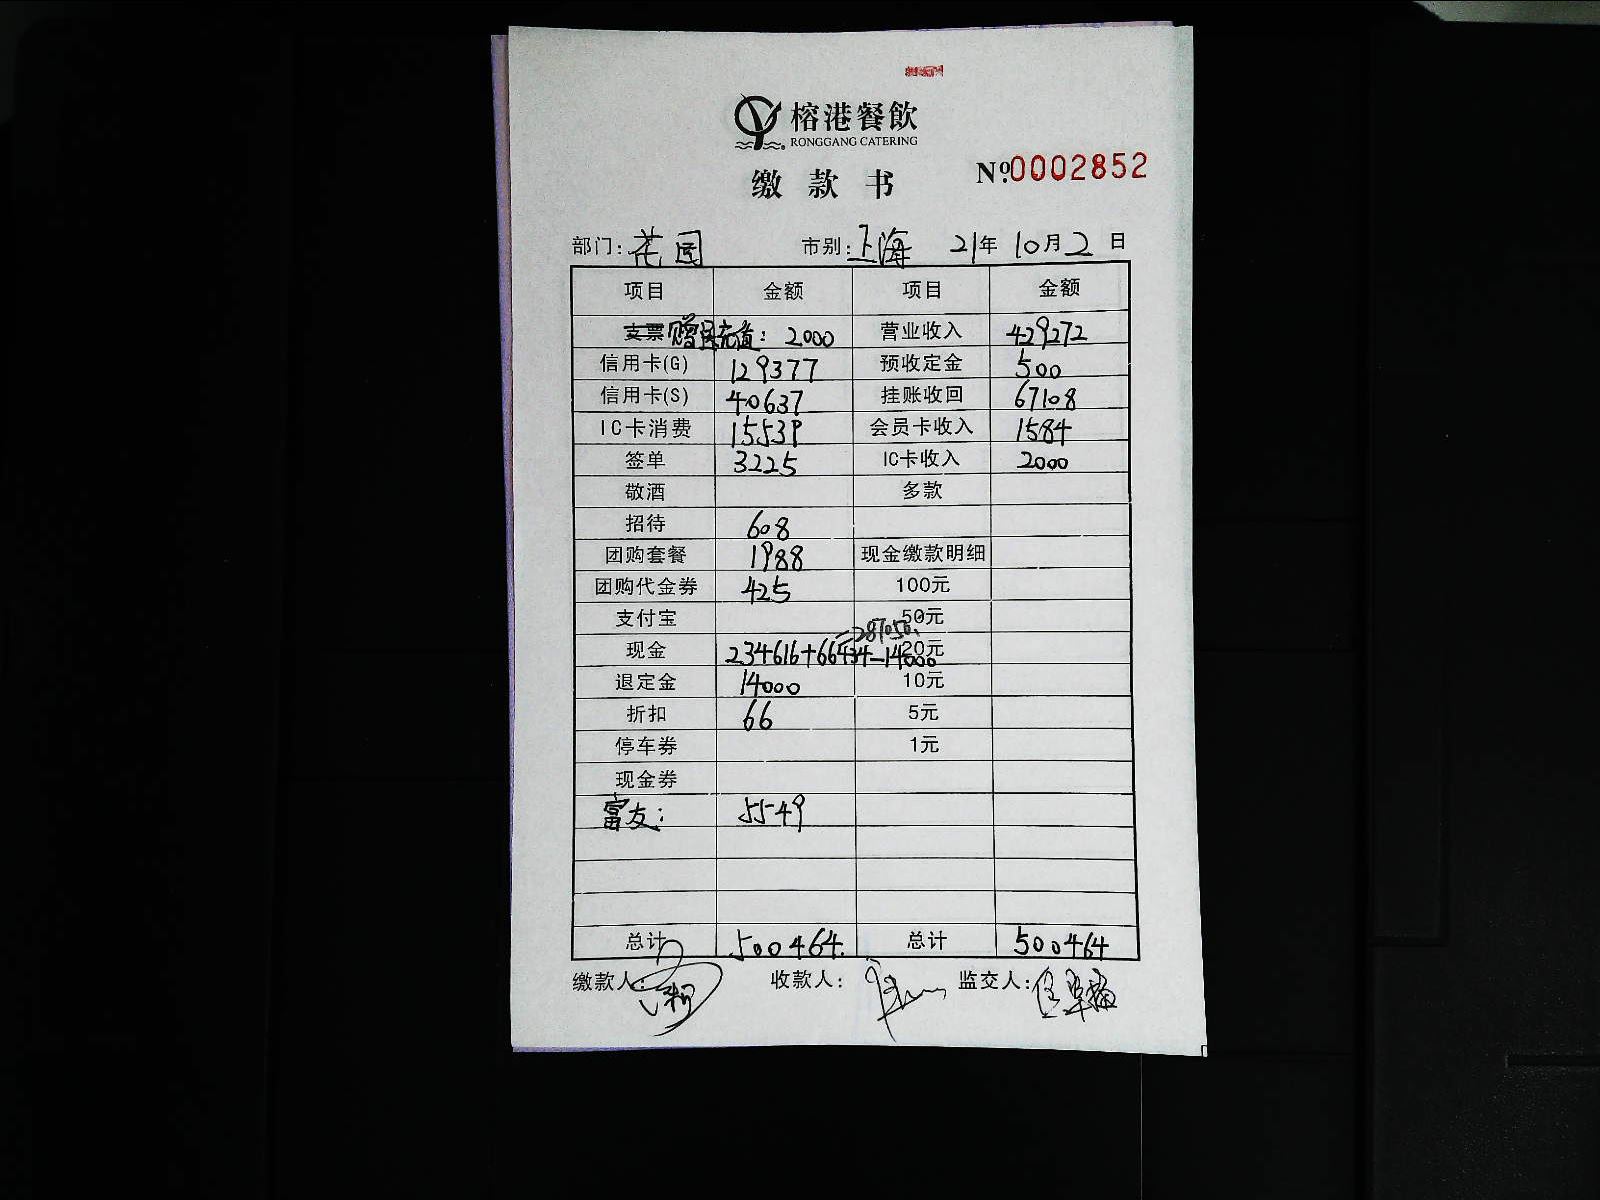 榕港餐飲
RONGGANG CATERING
缴款书
№0002852
部门: 花园 市别: 上海 21年10月2日
项目 金额 项目 金额
支票 赠送充值: 2000 营业收入 429272
信用卡(G) 129377 预收定金 500
信用卡(S) 40637 挂账收回 67108
IC卡消费 15539 会员卡收入 1584
签单 3225 IC卡收入 2000
敬酒 多款
招待 608
团购套餐 1988 现金缴款明细
团购代金券 425 100元
支付宝 50元
=287050.
现金 234616+66434-14000 20元
退定金 14000 10元
折扣 66 5元
停车券 1元
现金券
富友: 5549
总计 500464. 总计 500464
缴款人: 收款人: 监交人: